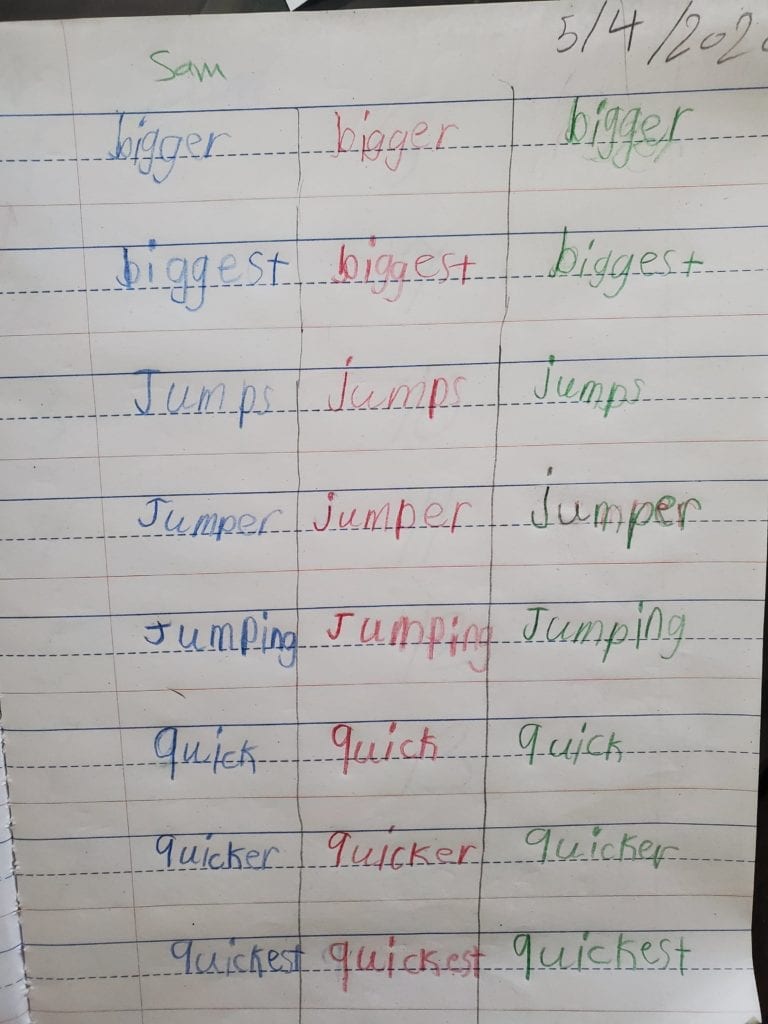 Sam 5/4/202
bigger bigger bigger
biggest biggest biggest
Jumps jumps jumps
Jumper jumper jumper
Jumping Jumping Jumping
quick quick quick
quicker quicker quicker
quickest quickest quickest